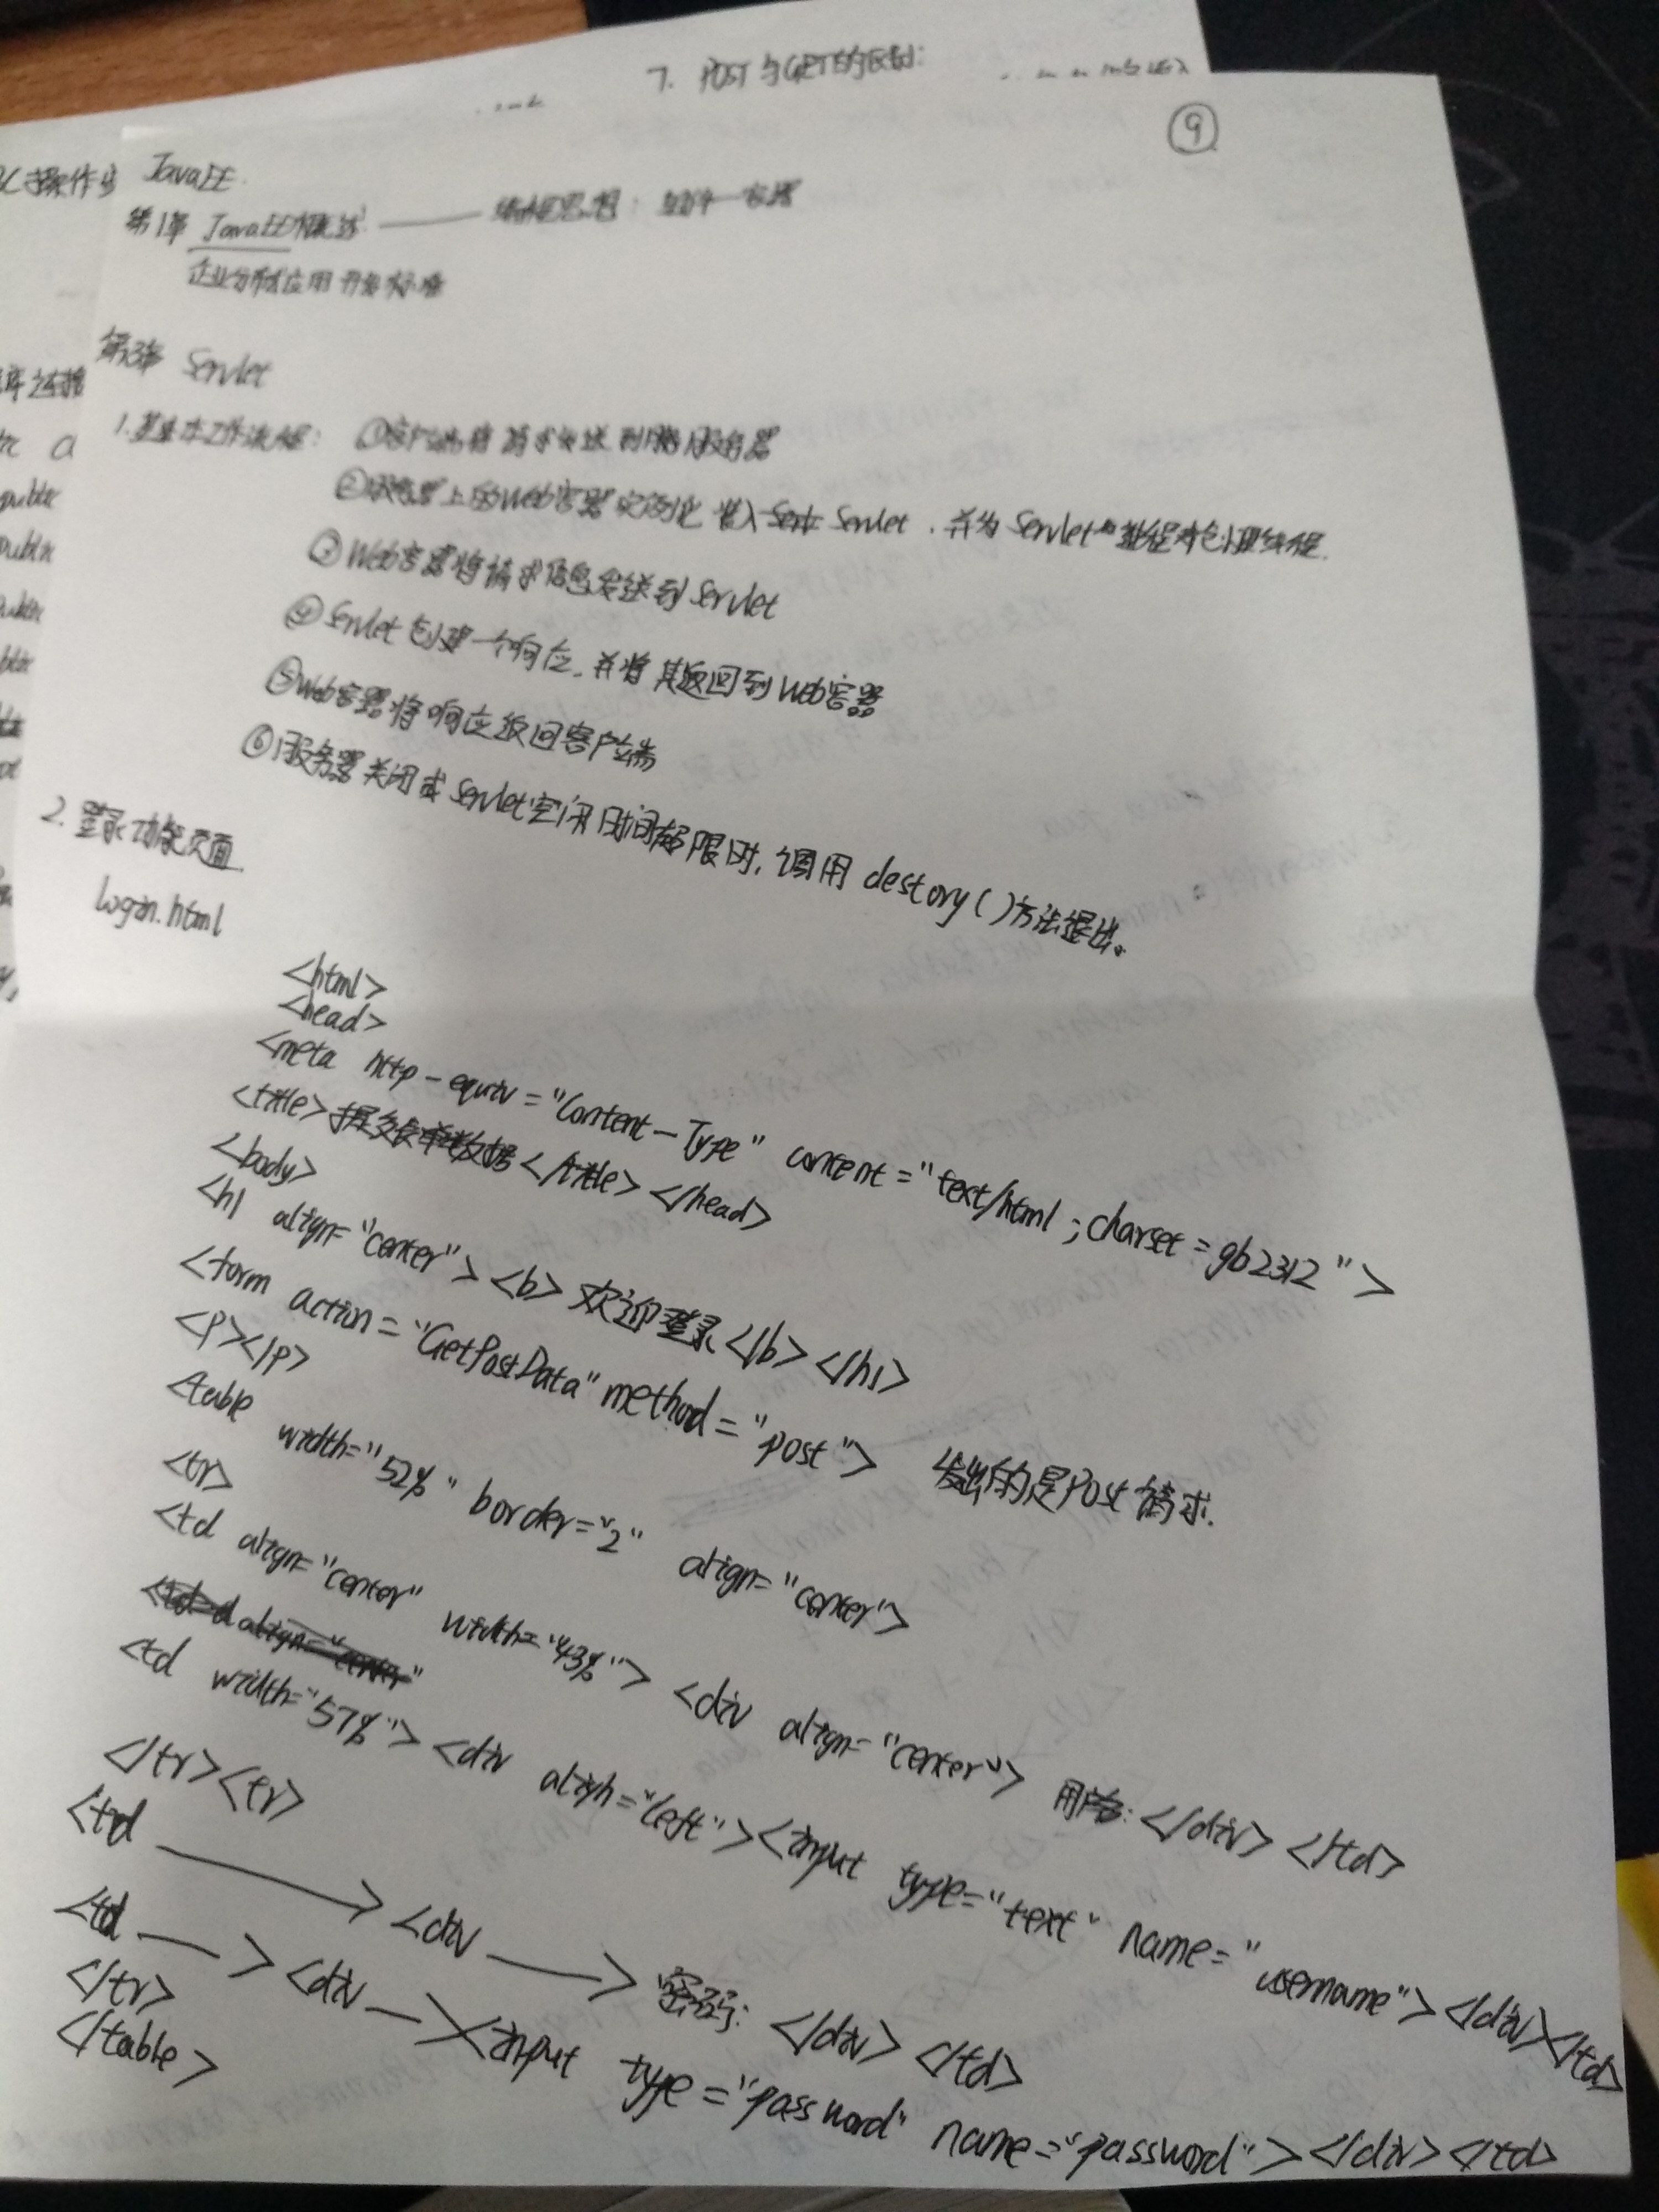 7. POST与GET的区别:
⑨
JavaEE
第1章 JavaEE概述 —— 编程思想: 组件—容器
企业分布式应用开发标准
第3章 Servlet
1.基本工作流程: ①客户端将请求发送到服务器
②服务器上的Web容器实例化 载入 Servlet, 并为Servlet 进程创建线程.
③Web容器将请求信息发送到Servlet
④Servlet创建一个响应, 并将其返回到Web容器
⑤Web容器将响应返回客户端
⑥服务器关闭或Servlet空闲时间超限时, 调用destory()方法退出。
2. 登录功能页面
login.html
<html>
<head>
<meta http-equiv="Content-Type" content="text/html;charset=gb2312">
<title>提交表单数据</title></head>
<body>
<h1 align="center"><b>欢迎登录</b></h1>
<form action="GetPostData" method="post"> 发出的是Post请求.
<p></p>
<table width="52%" border="2" align="center">
<tr>
<td align="center" width="43%"><div align="center">用户名:</div></td>
<td width="57%"><div align="left"><input type="text" name="username"></div></td>
</tr><tr>
<td ——> <div ——> 密码: </div></td>
<td ——> <div ——> <input type="password" name="password"></div></td>
</tr>
</table>